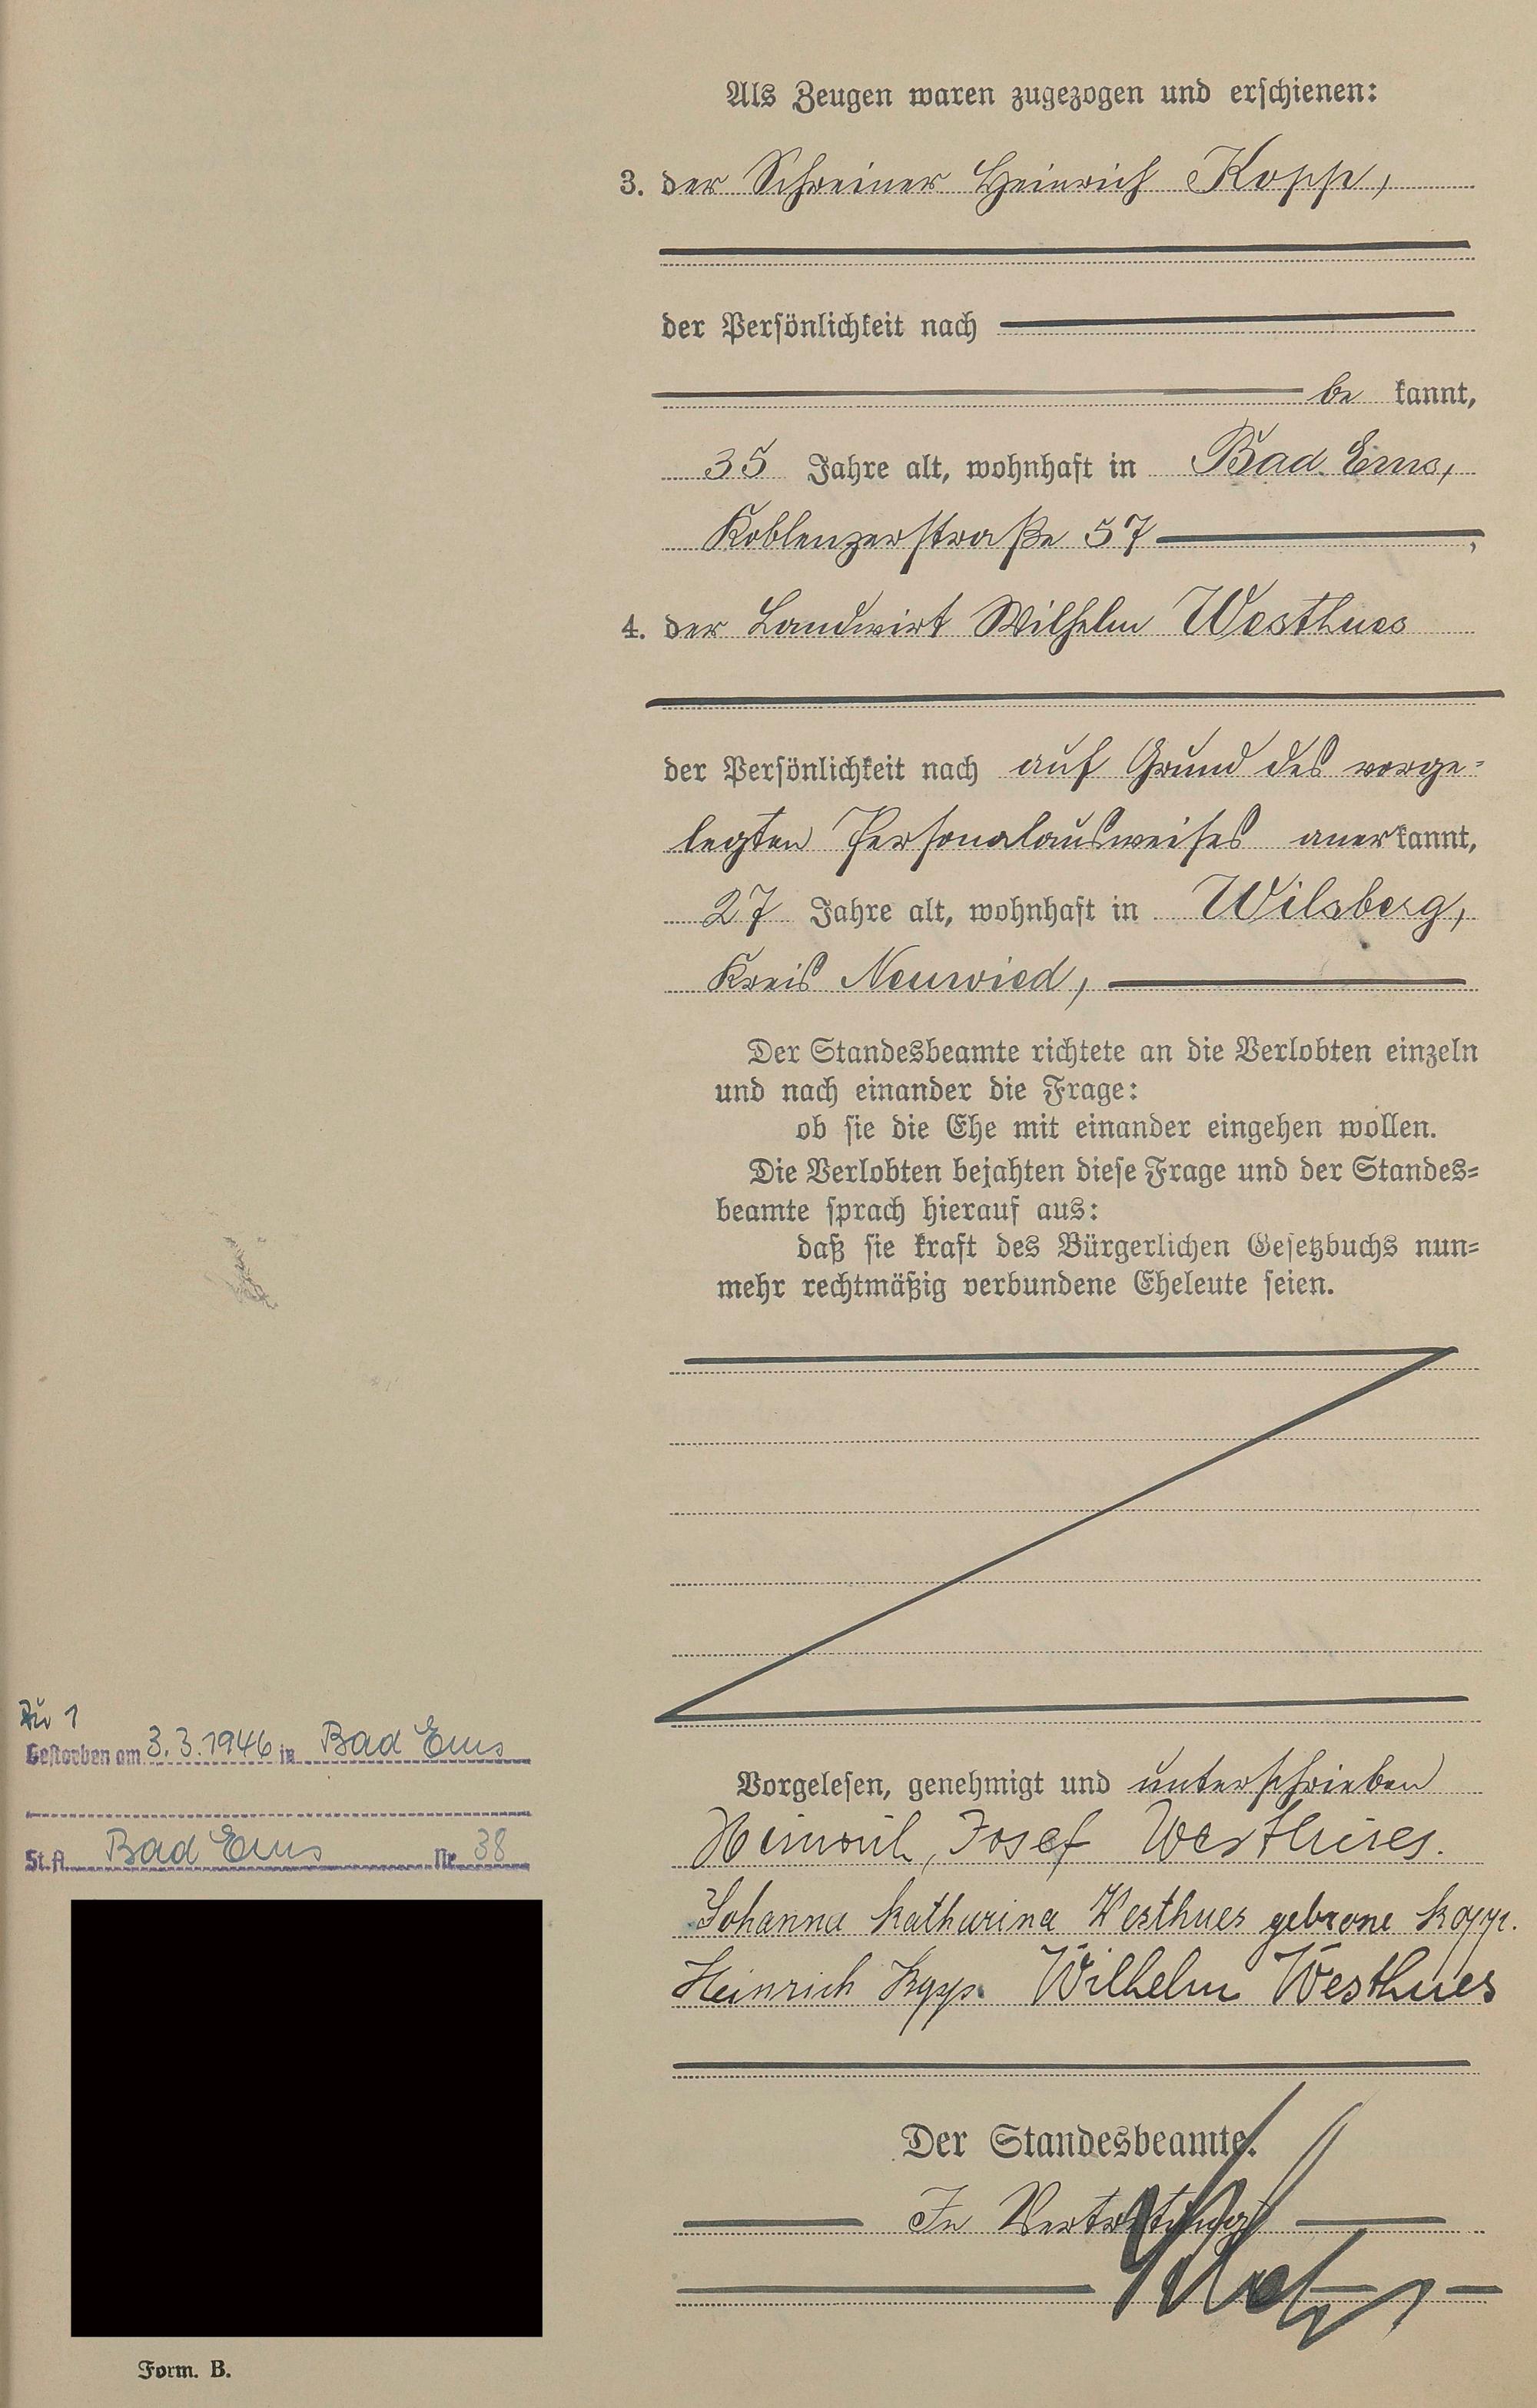 Als Zeugen waren zugezogen und erschienen:
3. der Schreiner Heinrich Kopp,
der Persönlichkeit nach
be kannt,
35 Jahre alt, wohnhaft in Bad Ems,
Koblenzerstraße 57,
4. der Landwirt Wilhelm Westhues
der Persönlichkeit nach auf Grund des vorge-
legten Personalausweises anerkannt,
27 Jahre alt, wohnhaft in Wilsberg,
Kreis Neuwied,
Der Standesbeamte richtete an die Verlobten einzeln
und nach einander die Frage:
ob sie die Ehe mit einander eingehen wollen.
Die Verlobten bejahten diese Frage und der Standes-
beamte sprach hierauf aus:
daß sie kraft des Bürgerlichen Gesetzbuchs nun-
mehr rechtmäßig verbundene Eheleute seien.
Zu 1
Gestorben am 3.3.1946 in Bad Ems
St.A. Bad Ems Nr. 38
Vorgelesen, genehmigt und unterschrieben
Heinrich, Josef Westhues.
Johanna Katharina Westhues gebrone Kopp.
Heinrich Kopp. Wilhelm Westhues
Der Standesbeamte.
In Vertretung
Form. B.